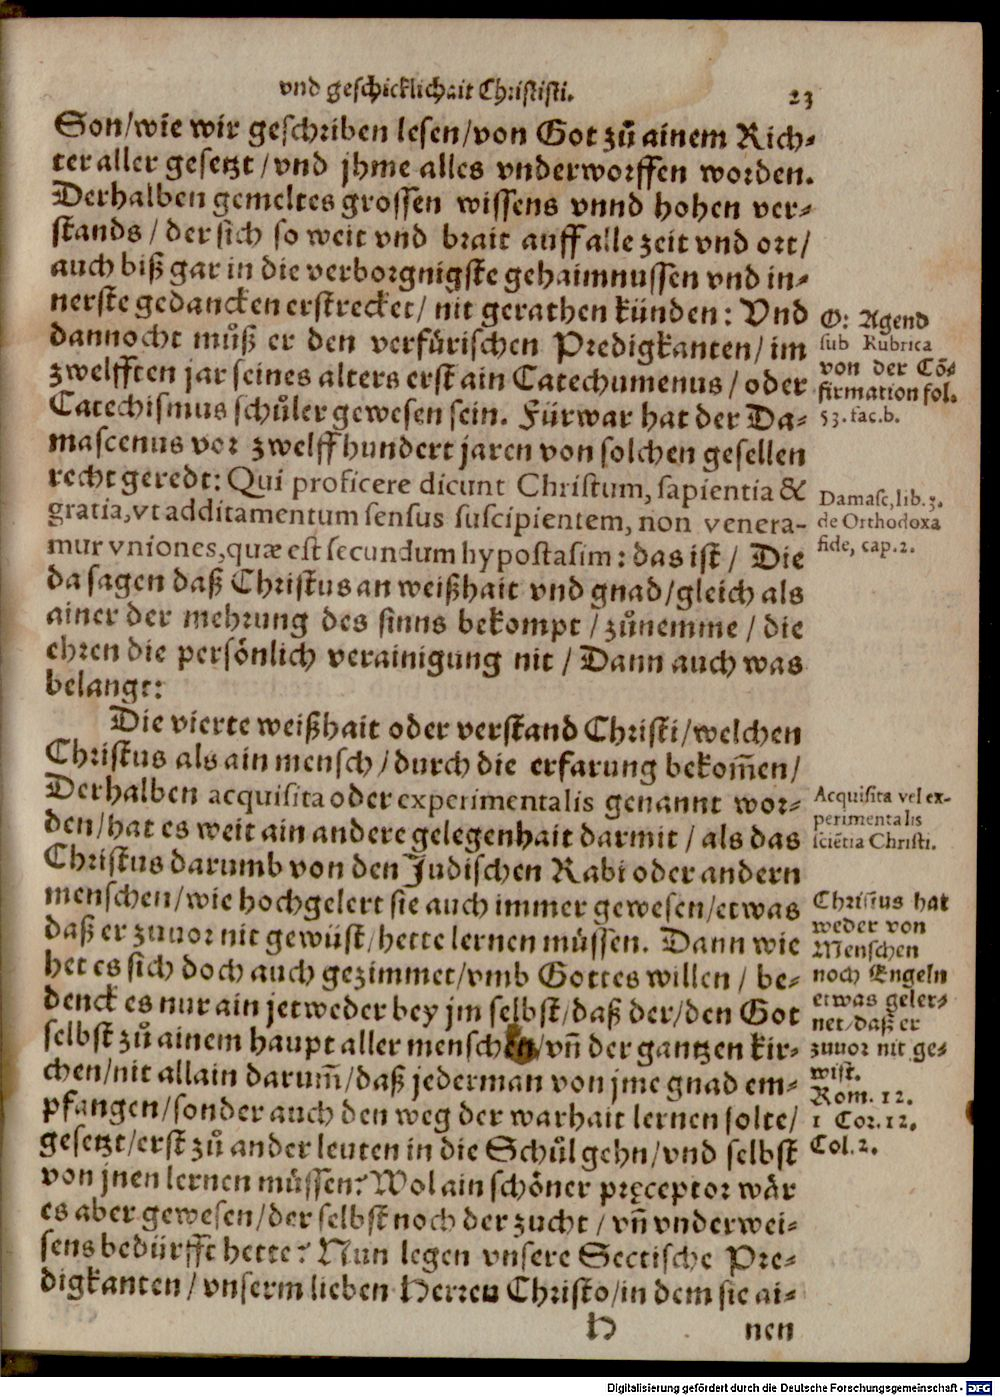 vnd geschicklichait Christisti.
23
Son/wie wir geschriben lesen/von Got zů ainem Rich⸗
ter aller gesetzt/vnd jhme alles vnderworffen worden.
Derhalben gemeltes grossen wissens vnnd hohen ver⸗
stands/der sich so weit vnd brait auff alle zeit vnd ort/
auch biß gar in die verborgnigste gehaimnussen vnd in⸗
nerste gedancken erstrecket/nit gerathen künden: Vnd
dannocht můß er den verfürischen Predigkanten/im
zwelfften jar seines alters erst ain Catechumenus/oder
Catechismus schůler gewesen sein. Fürwar hat der Da⸗
mascenus vor zwelffhundert jaren von solchen gesellen
recht geredt: Qui proficere dicunt Christum, sapientia &
gratia, vt additamentum sensus suscipientem, non venera-
mur vniones, quæ est secundum hypostasim: das ist/ Die
da sagen daß Christus an weißhait vnd gnad/gleich als
ainer der mehrung des sinns bekompt/zůnemme/die
ehren die persönlich verainigung nit/Dann auch was
belangt:
Die vierte weißhait oder verstand Christi/welchen
Christus als ain mensch/durch die erfarung bekom̃en/
Derhalben acquisita oder experimentalis genannt wor⸗
den/hat es weit ain andere gelegenhait darmit/als das
Christus darumb von den Judischen Rabi oder andern
menschen/wie hochgelert sie auch immer gewesen/etwas
daß er zuuor nit gewüst/hette lernen müssen. Dann wie
het es sich doch auch gezimmet/vmb Gottes willen/be⸗
denck es nur ain jetweder bey jm selbst/daß der/den Got
selbst zů ainem haupt aller menschen/vñ der gantzen kir⸗
chen/nit allain darum̃/daß jederman von jme gnad em⸗
pfangen/sonder auch den weg der warhait lernen solte/
gesetzt/erst zů ander leuten in die Schůl gehn/vnd selbst
von jnen lernen müssen? Wol ain schöner pręceptor wär
es aber gewesen/der selbst noch der zucht/vñ vnderwei⸗
sens bedürfft hette? Nun legen vnsere Sectische Pre⸗
digkanten/vnserm lieben Herren Christo/in dem sie ai⸗
H
nen
O: Agend
sub Rubrica
von der Cõ⸗
firmation fol.
53. fac. b.
Damasc, lib. 3.
de Orthodoxa
fide, cap. 2.
Acquisita vel ex-
perimentalis
sciẽtia Christi.
Christus hat
weder von
Menschen
noch Engeln
etwas geler⸗
net/daß er
zuuor nit ge⸗
wist.
Rom. 12.
1 Cor. 12.
Col. 2.
Digitalisierung gefördert durch die Deutsche Forschungsgemeinschaft - DFG